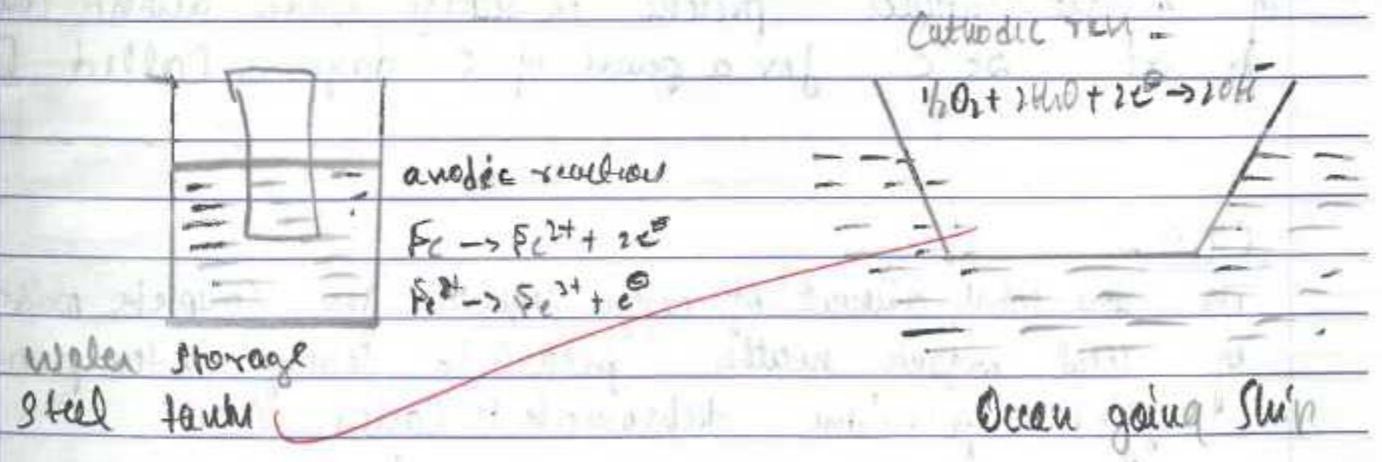 Cathodic rxn :-
½O₂ + 2H₂O + 2e⊖ → 2OH⁻
anodic reaction
Fe → Fe²⁺ + 2e⊖
Fe²⁺ → Fe³⁺ + e⊖
water storage
steel tank
Ocean going Ship